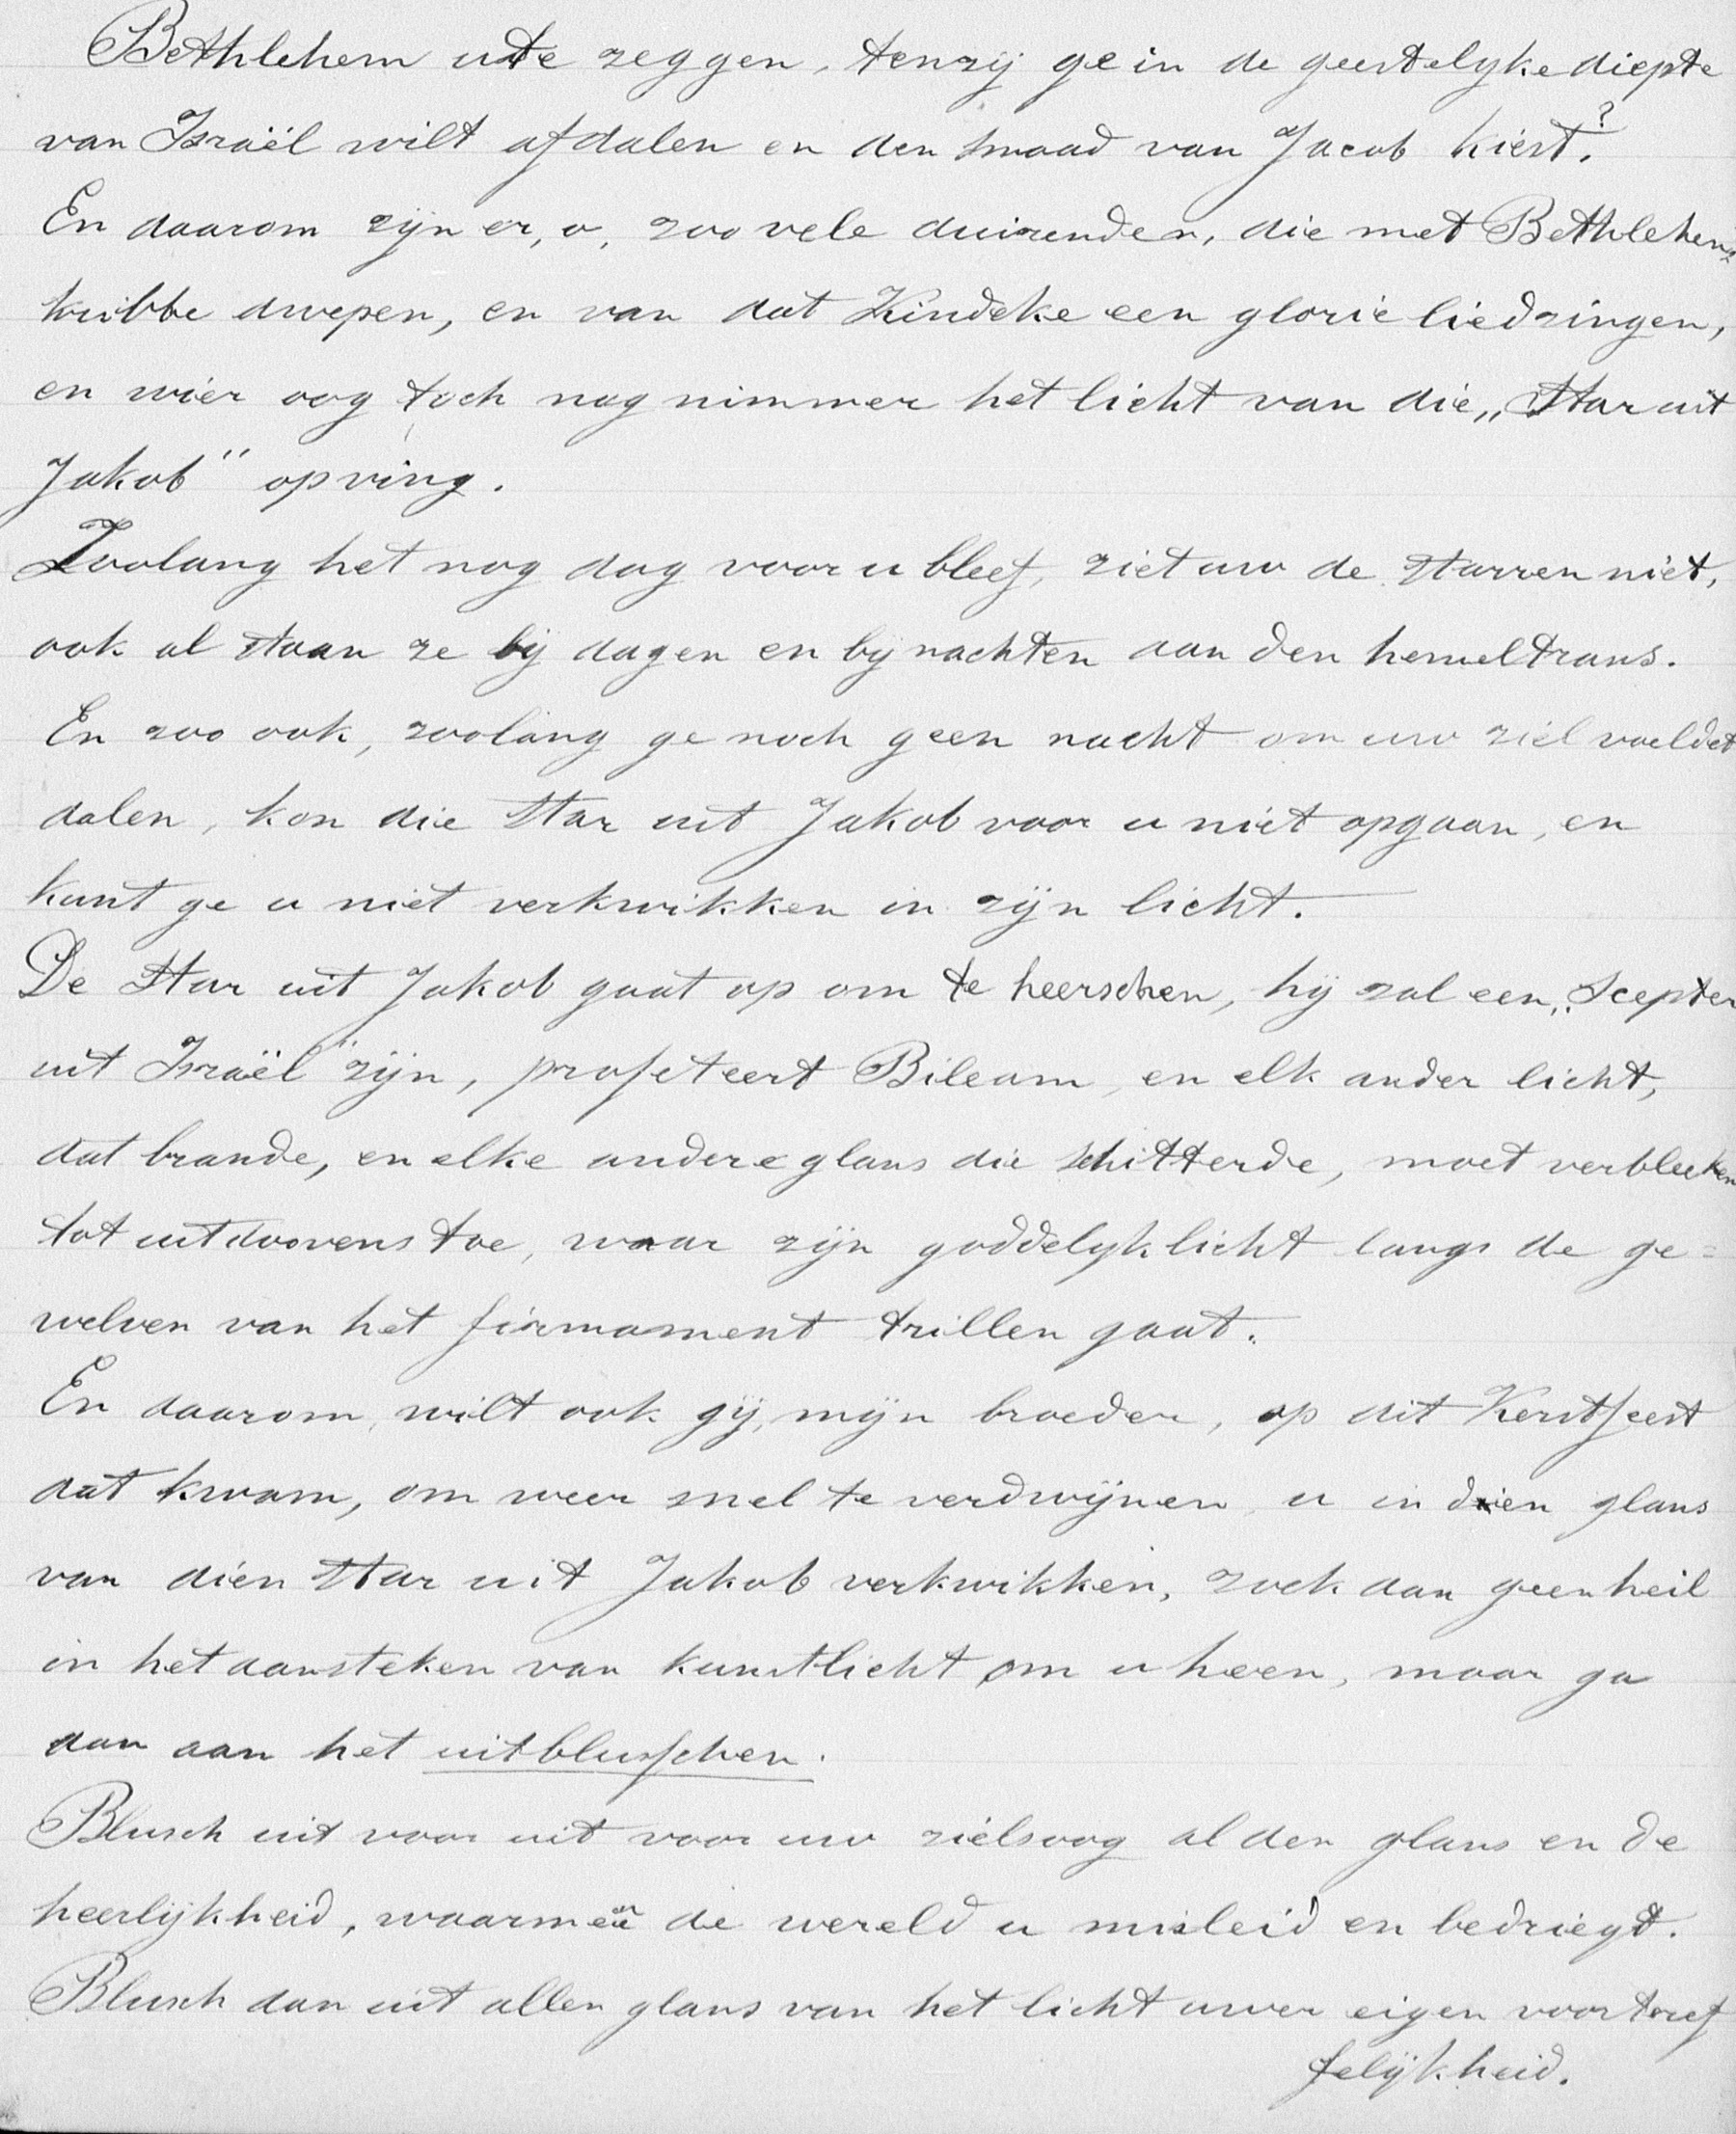 Bethlehem u te zeggen, tenzij ge in de geestelyke diepte
van Israël wilt afdalen en den smaad van Jacob kiest?
En daarom zijn er, o, zoo vele duizenden, die met Bethlehems
kribbe dwepen, en van dat Kindeke een glorie lied zingen,
en wier oog toch nog nimmer het licht van die „Star uit
Jakob" opving.
Zoolang het nog dag voor u bleef, ziet uw de starren niet,
ook al staan ze bij dagen en bij nachten aan den hemeltrans.
En zoo ook, zoolang ge noch geen nacht om uw ziel voeldet
dalen, kon die Star uit Jakob voor u niet opgaan, en
kunt ge u niet verkwikken in zijn licht.
De Star uit Jakob gaat op om te heerschen, hij zal een „Scepter
uit Israël" zijn, profeteert Bileam, en elk ander licht,
dat brande, en elke andere glans die schitterde, moet verbleeken
tot uitdoovens toe, waar zijn goddelyk licht langs de ge=
welven van het firmament trillen gaat.
En daarom, wilt ook gij, mijn broeder, op dit Kerstfeest
dat kwam, om weer snel te verdwijnen, u in dien glans
van dien Star uit Jakob verkwikken, zoek dan geen heil
in het aansteken van kunstlicht om u heen, maar ga
dan aan het uitblusschen.
Blusch uit voor uit voor uw zielsoog al den glans en de
heerlijkheid, waarmeê de wereld u misleid en bedriegt.
Blusch dan uit allen glans van het licht uwer eigen voortref
felijkheid.